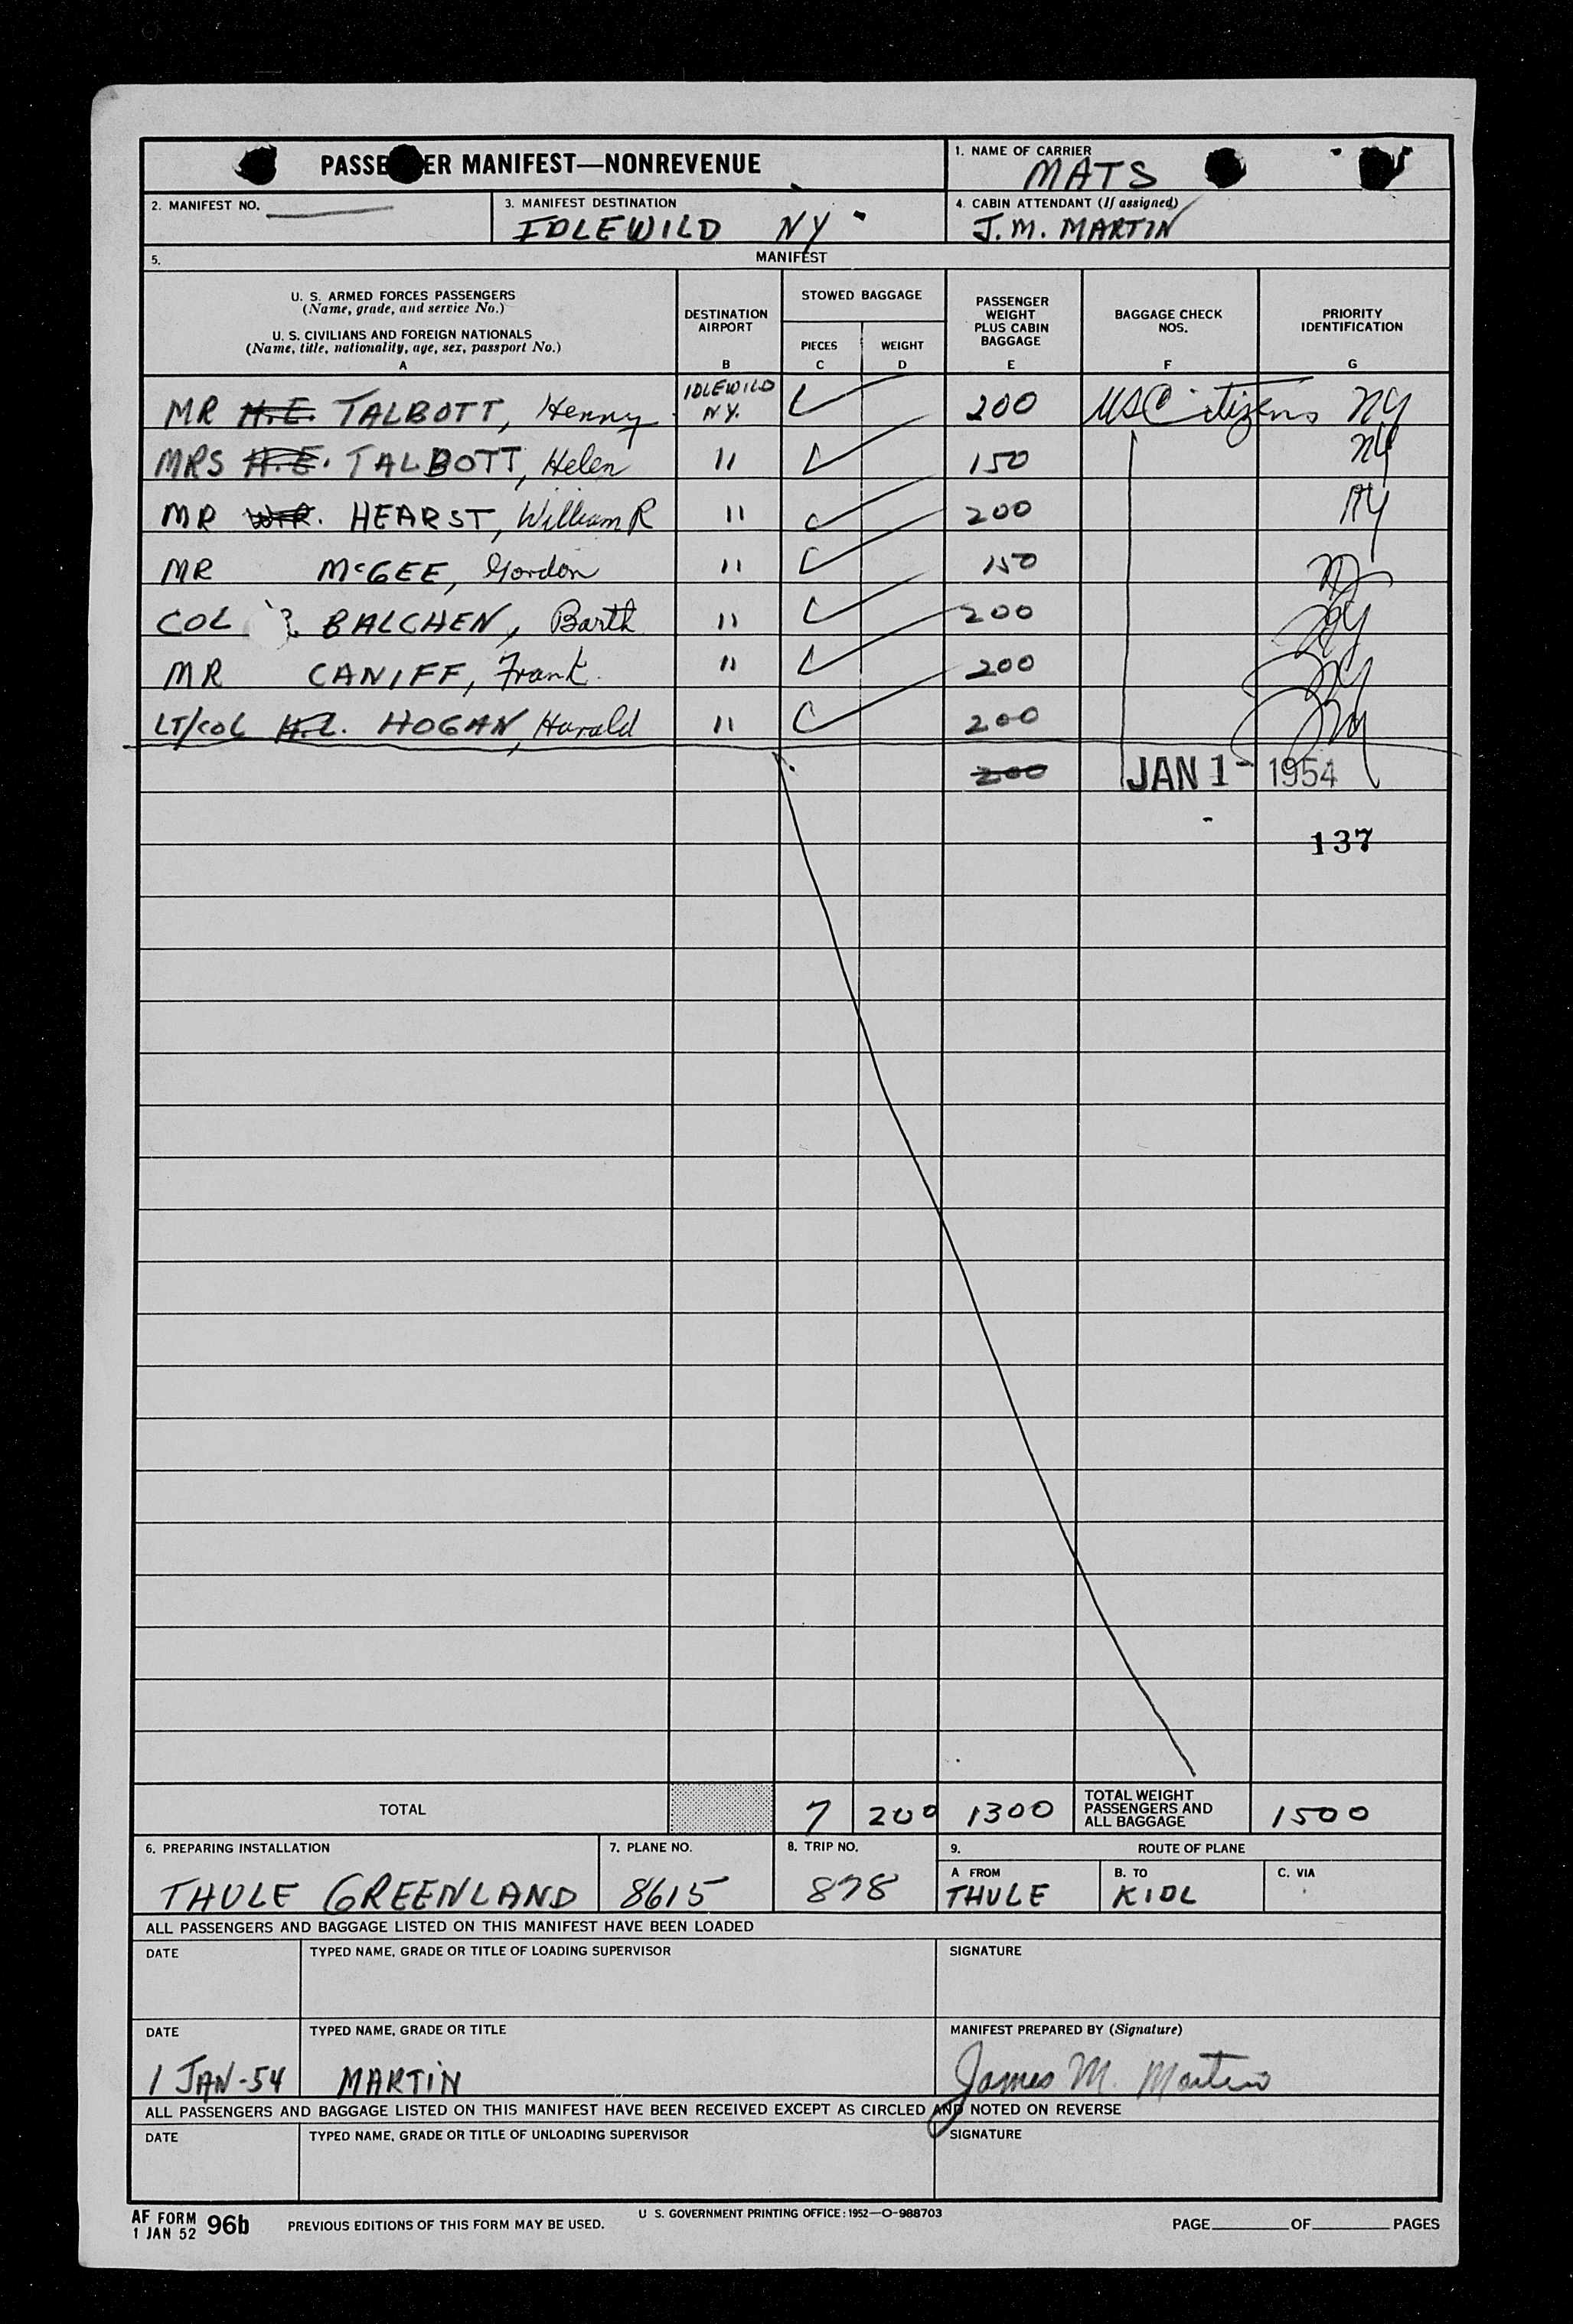 PASSE ER MANIFEST—NONREVENUE
1. NAME OF CARRIER
MATS
2. MANIFEST NO.
3. MANIFEST DESTINATION
IDLEWILD NY
4. CABIN ATTENDANT (If assigned)
J. M. MARTIN
5. MANIFEST
U. S. ARMED FORCES PASSENGERS
(Name, grade, and service No.)
U. S. CIVILIANS AND FOREIGN NATIONALS
(Name, title, nationality, age, sex, passport No.)
A
DESTINATION
AIRPORT
B
STOWED BAGGAGE
PIECES
C
WEIGHT
D
PASSENGER
WEIGHT
PLUS CABIN
BAGGAGE
E
BAGGAGE CHECK
NOS.
F
PRIORITY
IDENTIFICATION
G
MR H.E. TALBOTT, Henny IDLEWILD N.Y. 200 US Citizens NY
MRS H.E. TALBOTT, Helen " 150 NY
MR W.R. HEARST, William R " 200 NY
MR McGEE, Gordon " 150
COL BALCHEN, Barth " 200
MR CANIFF, Frank " 200
LT/COL H.L. HOGAN, Harald " 200
200 JAN 1- 1954
137
TOTAL 7 200 1300
TOTAL WEIGHT
PASSENGERS AND
ALL BAGGAGE
1500
6. PREPARING INSTALLATION
THULE GREENLAND
7. PLANE NO.
8615
8. TRIP NO.
878
9. ROUTE OF PLANE
A FROM
THULE
B. TO
KIDL
C. VIA
ALL PASSENGERS AND BAGGAGE LISTED ON THIS MANIFEST HAVE BEEN LOADED
DATE
TYPED NAME, GRADE OR TITLE OF LOADING SUPERVISOR
SIGNATURE
DATE
1 JAN-54
TYPED NAME, GRADE OR TITLE
MARTIN
MANIFEST PREPARED BY (Signature)
James M. Martin
ALL PASSENGERS AND BAGGAGE LISTED ON THIS MANIFEST HAVE BEEN RECEIVED EXCEPT AS CIRCLED AND NOTED ON REVERSE
DATE
TYPED NAME, GRADE OR TITLE OF UNLOADING SUPERVISOR
SIGNATURE
AF FORM 96b
1 JAN 52
PREVIOUS EDITIONS OF THIS FORM MAY BE USED.
U S. GOVERNMENT PRINTING OFFICE: 1952—O-988703
PAGE OF PAGES